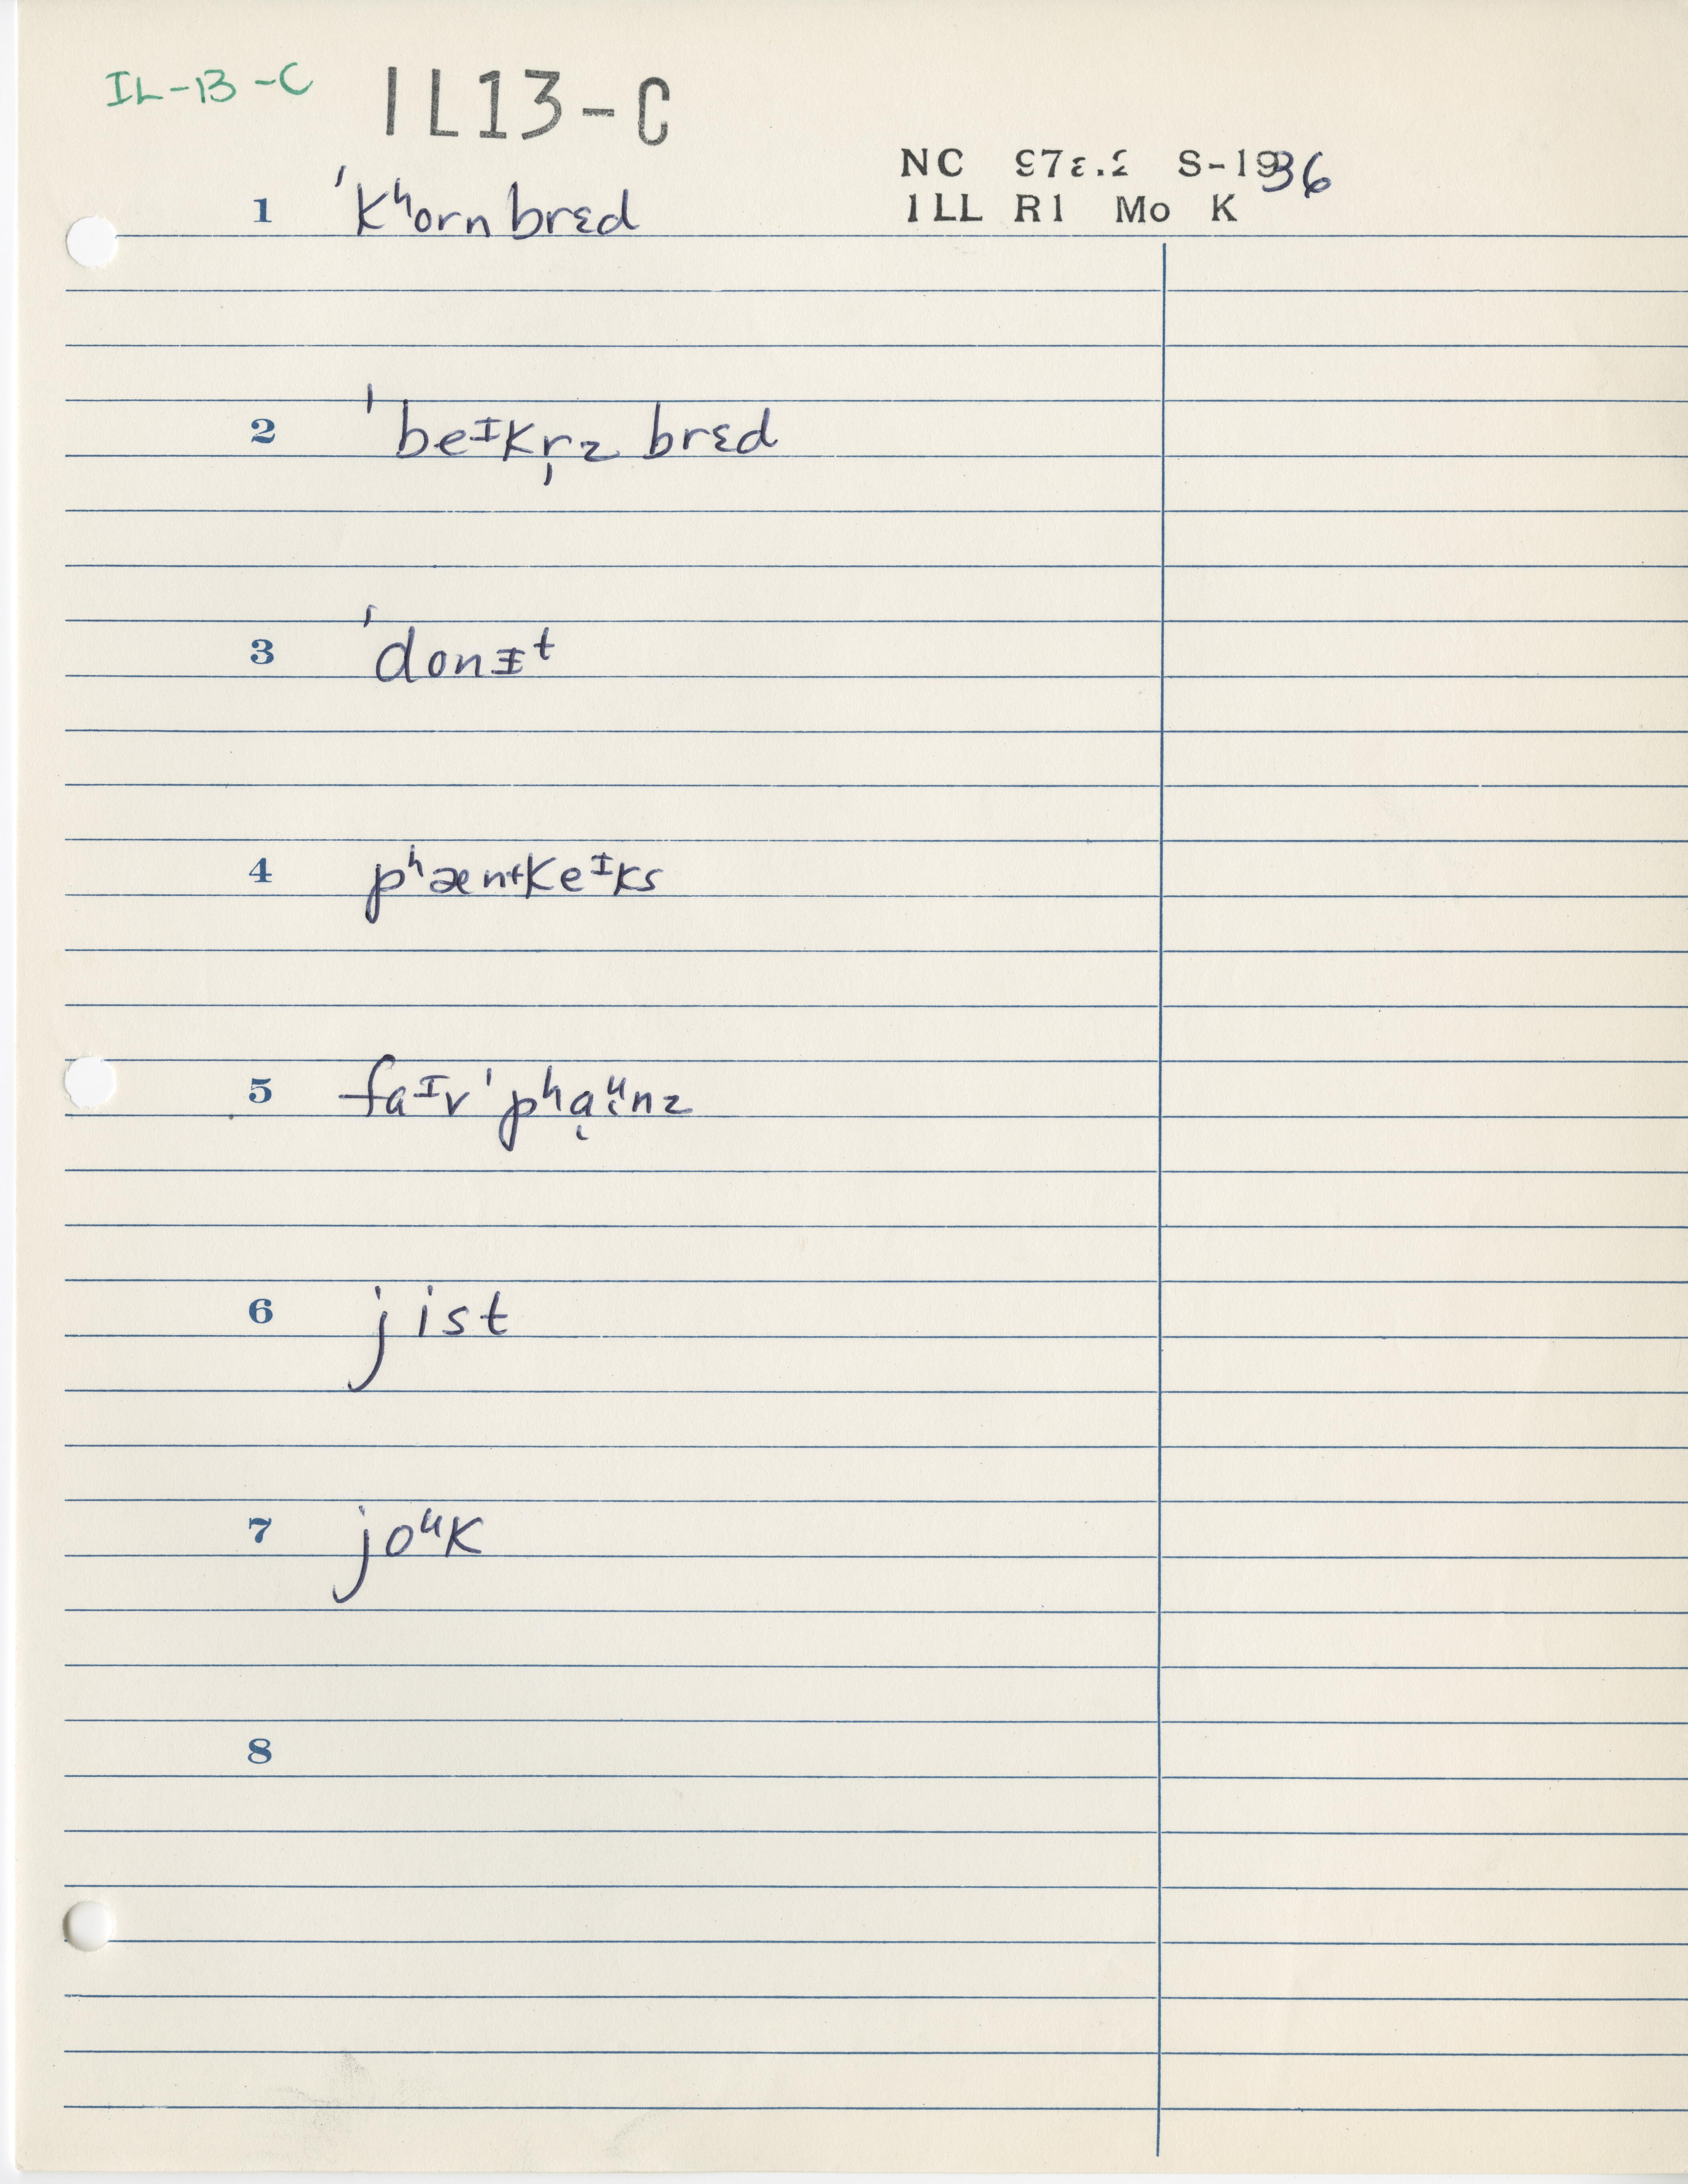 IL-13-C IL13-C
NC 973.2 S-1936
ILL R1 Mo K
1 ˈkʰorn brɛd
2 ˈbeᴵkr̩z brɛd
3 ˈdonᵻᵗ
4 pʰæntkeᴵks
5 faᴵv ˈpʰɑ̜ᵘ̈nz
6 jist
7 joᵘk
8